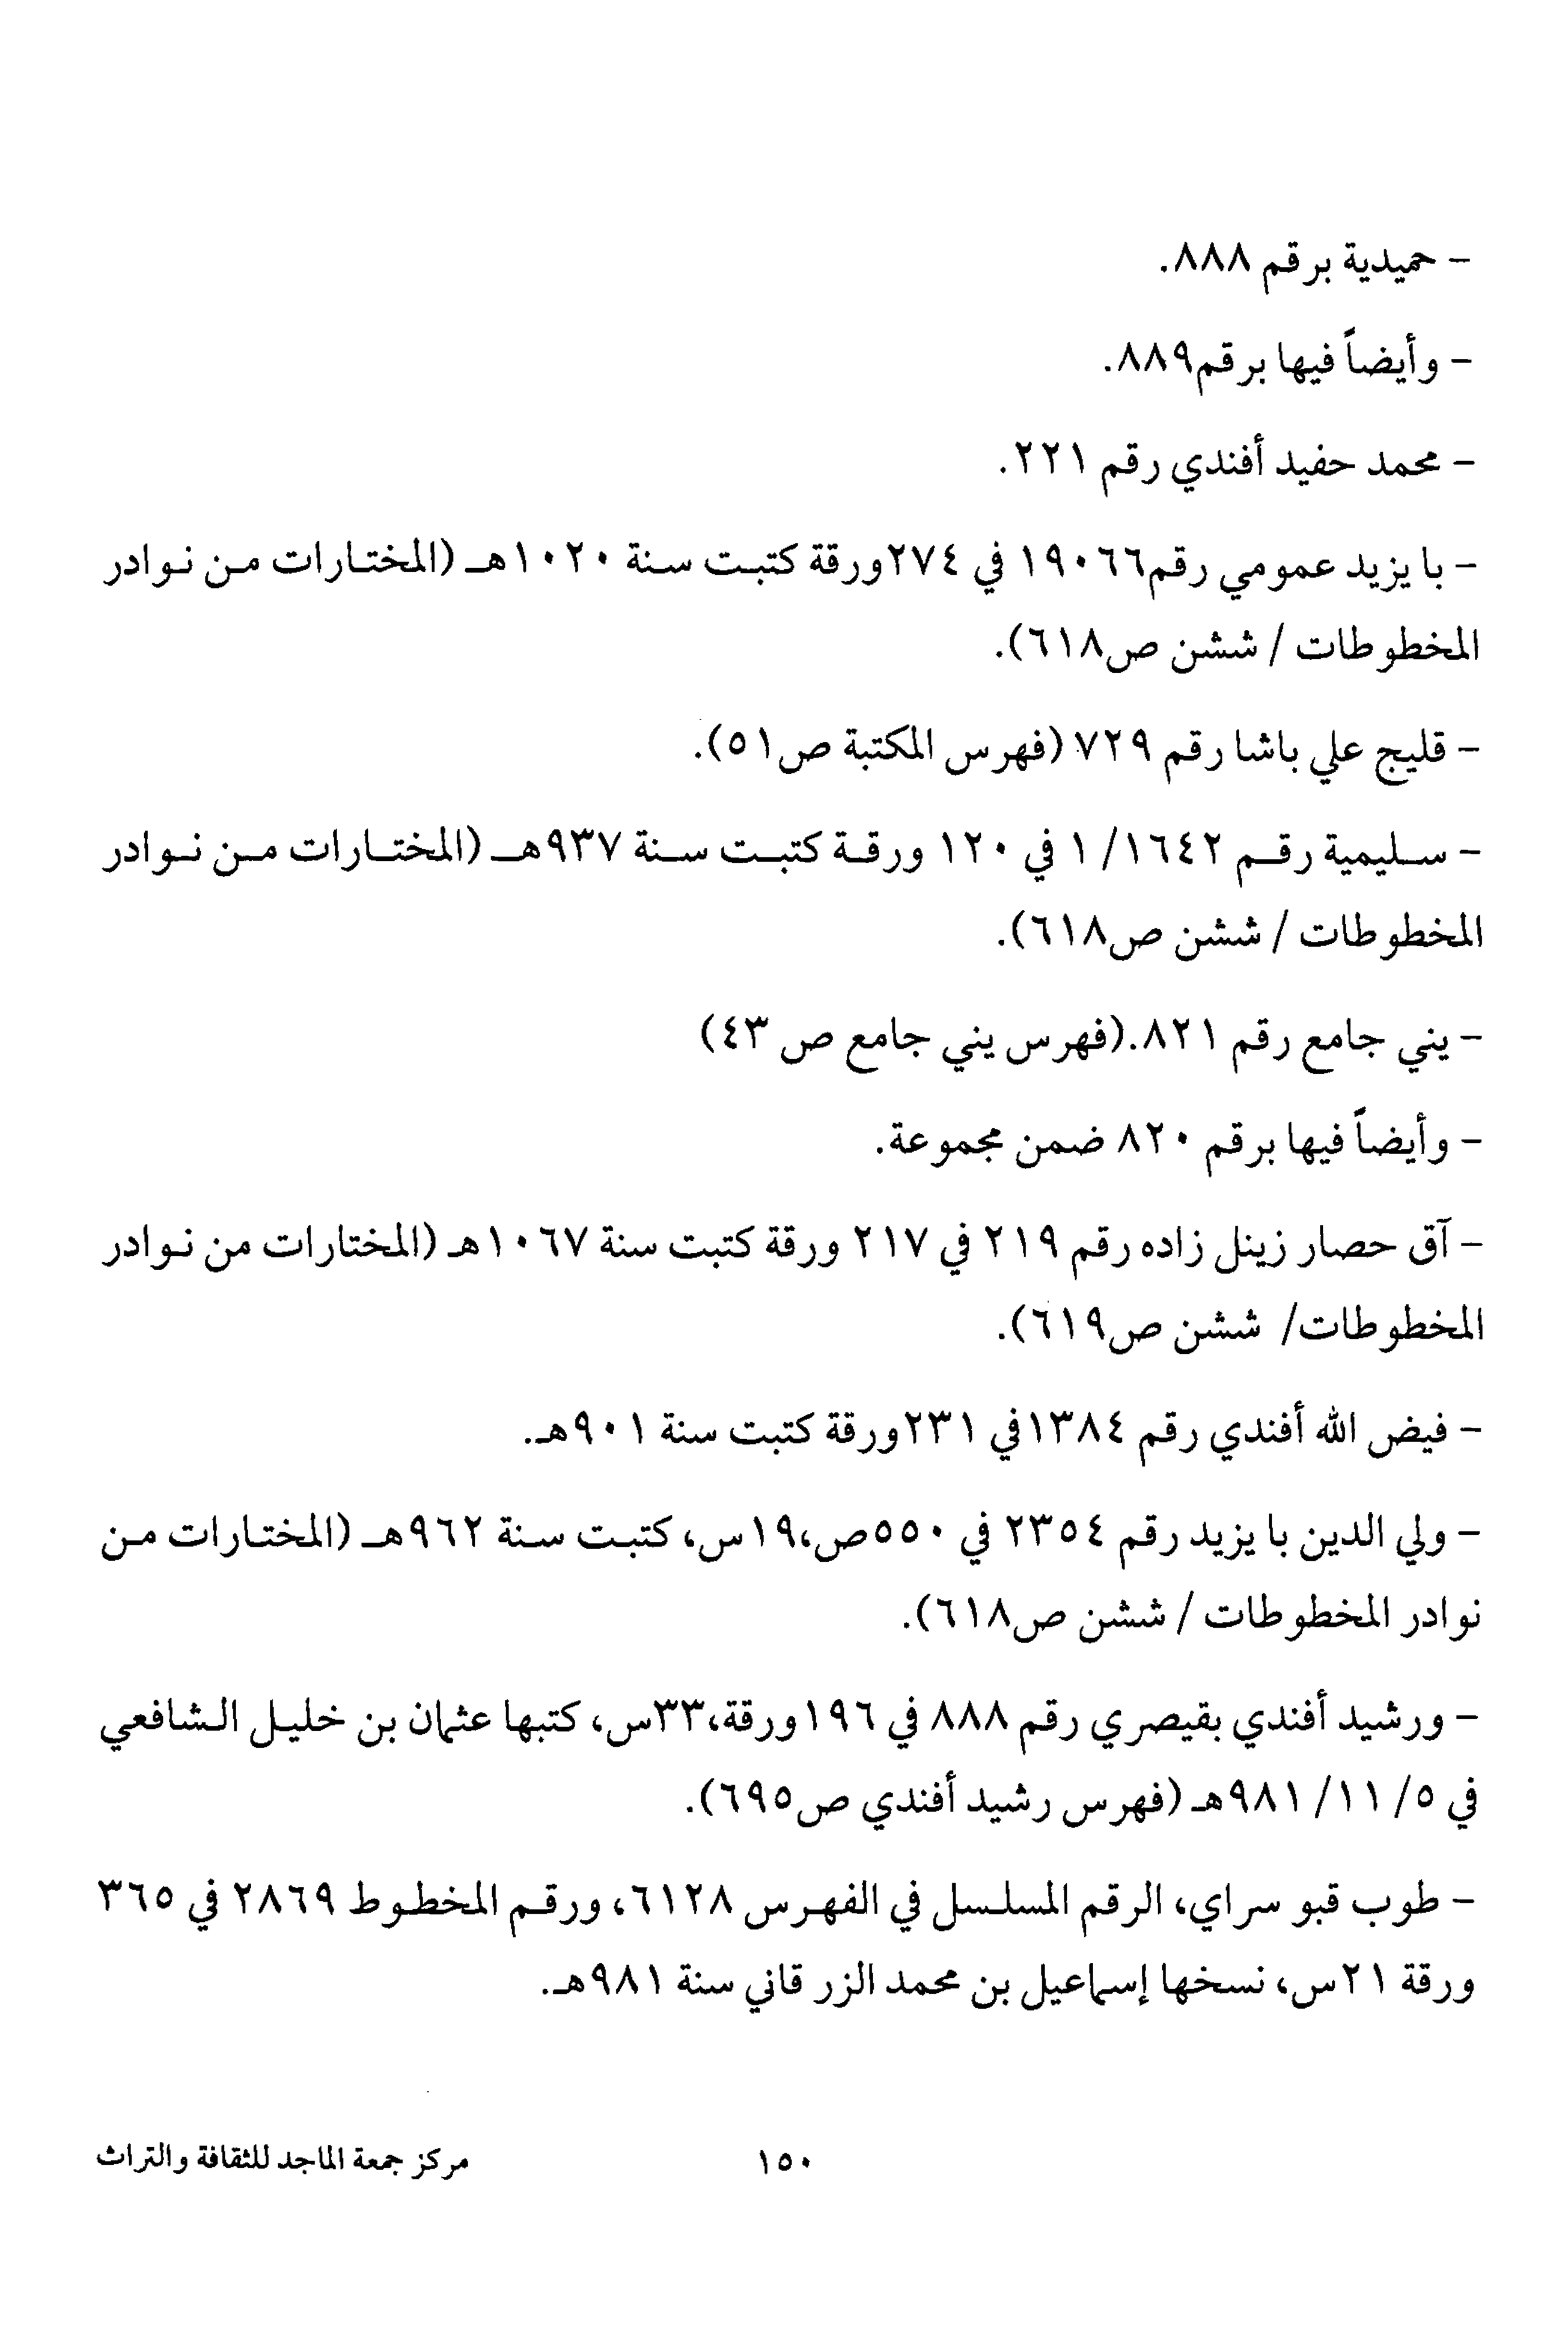 - حميدية برقم ٨٨٨.
- وأيضاً فيها برقم٨٨٩.
- محمد حفيد أفندي رقم ٢٢١.
- با يزيد عمومي رقم١٩٠٦٦ في ٢٧٤ورقة كتبت سنة ١٠٢٠هـ (المختارات من نوادر
المخطوطات / ششن ص٦١٨).
- قليج علي باشا رقم ٧٢٩ (فهرس المكتبة ص٥١).
- سليمية رقم ١٦٤٢/ ١ في ١٢٠ ورقة كتبت سنة ٩٣٧هـ (المختارات من نوادر
المخطوطات / ششن ص٦١٨).
- يني جامع رقم ٨٢١.(فهرس يني جامع ص ٤٣)
- وأيضاً فيها برقم ٨٢٠ ضمن مجموعة.
- آق حصار زينل زاده رقم ٢١٩ في ٢١٧ ورقة كتبت سنة ١٠٦٧هـ (المختارات من نوادر
المخطوطات/ ششن ص٦١٩).
- فيض الله أفندي رقم ١٣٨٤في ٢٣١ورقة كتبت سنة ٩٠١هـ.
- ولي الدين با يزيد رقم ٢٣٥٤ في ٥٥٠ص،١٩س، كتبت سنة ٩٦٢هـ (المختارات من
نوادر المخطوطات / ششن ص٦١٨).
- ورشيد أفندي بقيصري رقم ٨٨٨ في ١٩٦ورقة،٣٣س، كتبها عثمان بن خليل الشافعي
في ٥/ ١١/ ٩٨١هـ (فهرس رشيد أفندي ص٦٩٥).
- طوب قبو سراي، الرقم المسلسل في الفهرس ٦١٢٨، ورقم المخطوط ٢٨٦٩ في ٣٦٥
ورقة ٢١س، نسخها إسماعيل بن محمد الزرقاني سنة ٩٨١هـ.
١٥٠
مركز جمعة الماجد للثقافة والتراث